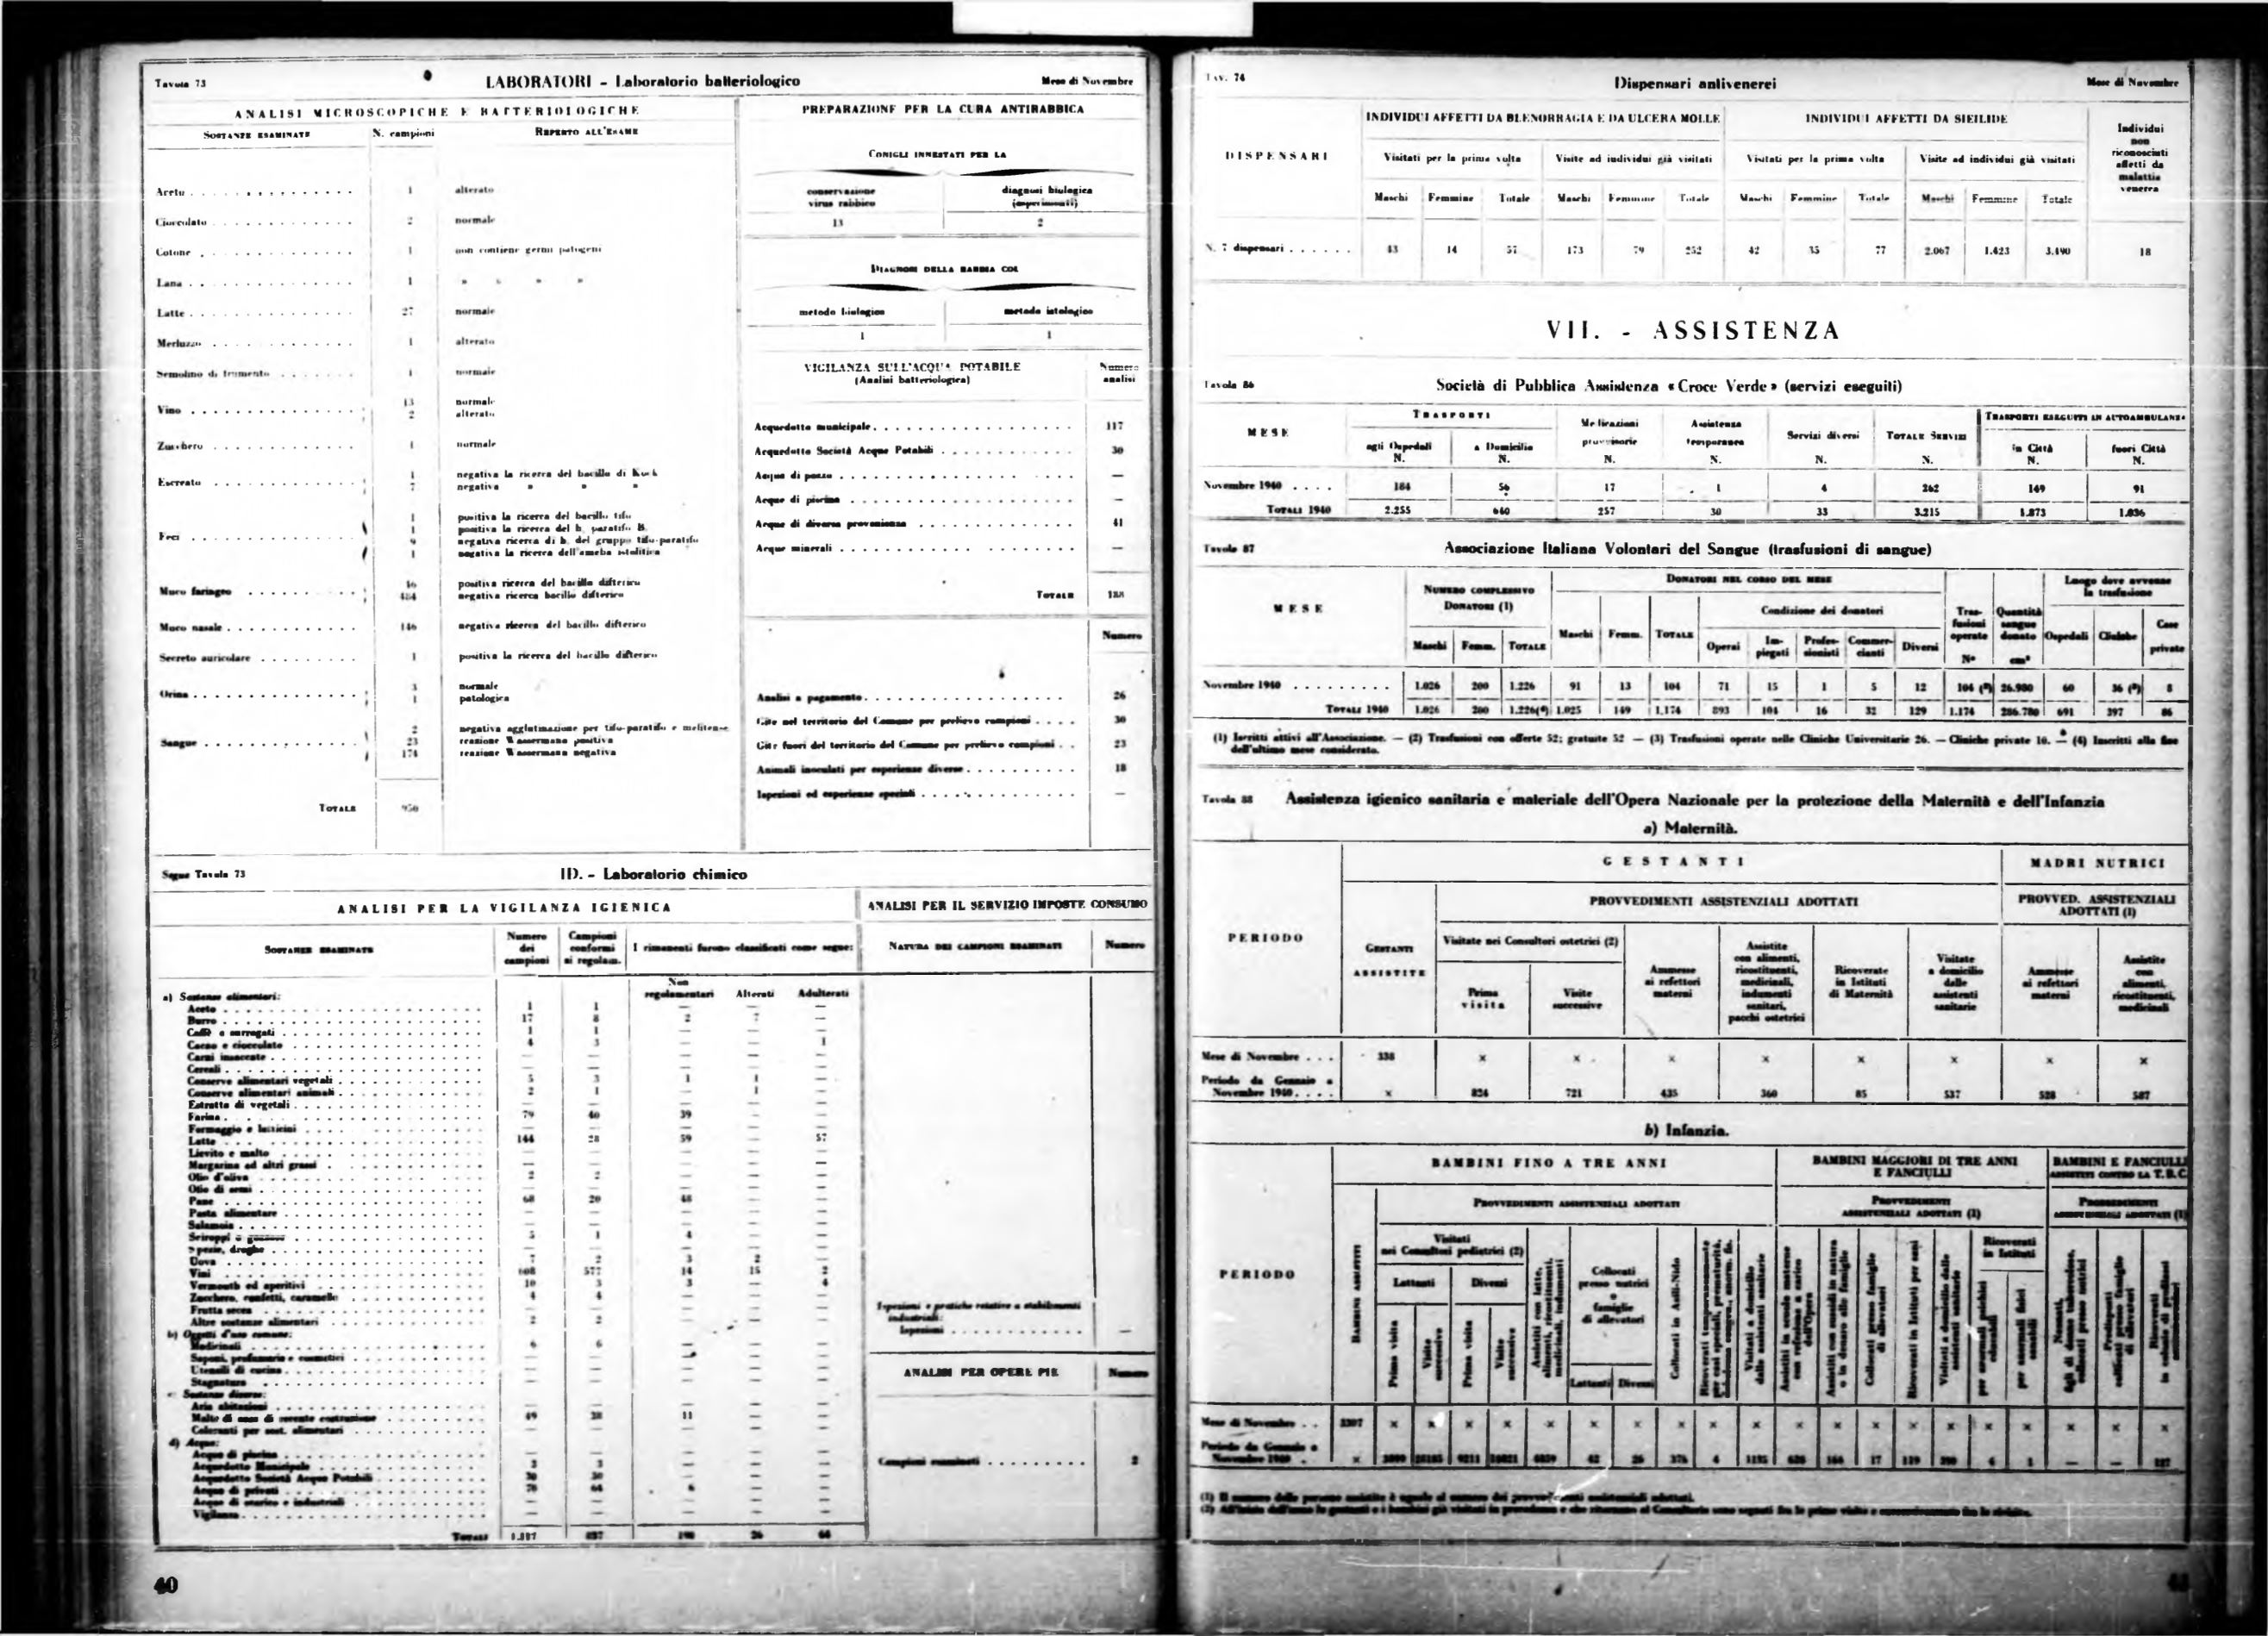 Tavola 73
LABORATORI - Laboratorio batteriologico
Mese di Novembre
ANALISI MICROSCOPICHE E BATTERIOLOGICHE
SOSTANZE ESAMINATE N. campioni REPERTO ALL'ESAME
Aceto 1 alterato
Cioccolato 2 normale
Cotone 1 non contiene germi patogeni
Lana 1 » » » »
Latte 27 normale
Merluzzo 1 alterato
Semolino di frumento 1 normale
Vino 13 normale
2 alterato
Zucchero 1 normale
Escreato 1 negativa la ricerca del bacillo di Kock
7 negativa » » »
Feci 1 positiva la ricerca del bacillo tifo
1 positiva la ricerca del b. paratifo B.
9 negativa ricerca di b. del gruppo tifo-paratifo
1 negativa la ricerca dell'ameba istolitica
Muco faringeo 46 positiva ricerca del bacillo difterico
484 negativa ricerca bacillo difterico
Muco nasale 146 negativa ricerca del bacillo difterico
Secreto auricolare 1 positiva la ricerca del bacillo difterico
Orina 3 normale
1 patologica
Sangue 2 negativa agglutinazione per tifo-paratifo e melitense
23 reazione Wassermann positiva
174 reazione Wassermann negativa
TOTALE 950
PREPARAZIONE PER LA CURA ANTIRABBICA
CONIGLI INNESTATI PER LA
conservazione virus rabbico
diagnosi biologica (esperimenti)
13 2
DIAGNOSI DELLA RABBIA COL
metodo biologico metodo istologico
1 1
VIGILANZA SULL'ACQUA POTABILE
(Analisi batteriologica)
Numero analisi
Acquedotto municipale 117
Acquedotto Società Acque Potabili 30
Acqua di pozzo —
Acque di piscina —
Acque di diversa provenienza 41
Acque minerali —
TOTALE 188
Numero
Analisi a pagamento 26
Gite nel territorio del Comune per prelievo campioni 30
Gite fuori del territorio del Comune per prelievo campioni 23
Animali inoculati per esperienze diverse 18
Ispezioni ed esperienze speciali —
Segue Tavola 73
ID. - Laboratorio chimico
ANALISI PER LA VIGILANZA IGIENICA
SOSTANZE ESAMINATE
Numero dei campioni
Campioni conformi ai regolam.
I rimanenti furono classificati come segue:
Non regolamentari Alterati Adulterati
a) Sostanze alimentari:
Aceto 1 1 — — —
Burro 17 8 2 7 —
Caffè e surrogati 1 1 — — —
Cacao e cioccolato 4 3 — — 1
Carni insaccate — — — — —
Cereali — — — — —
Conserve alimentari vegetali 5 3 1 1 —
Conserve alimentari animali 2 1 — 1 —
Estratto di vegetali — — — — —
Farina 79 40 39 — —
Formaggio e latticini — — — — —
Latte 144 28 59 — 57
Lievito e malto — — — — —
Margarina ed altri grassi — — — — —
Olio d'oliva 2 2 — — —
Olio di semi — — — — —
Pane 68 20 48 — —
Pasta alimentare — — — — —
Salamoia — — — — —
Sciroppi e gassose 5 1 4 — —
Spezie, droghe — — — — —
Uova 7 2 3 2 —
Vini 608 577 14 15 2
Vermouth ed aperitivi 10 3 3 — 4
Zucchero, confetti, caramelle 4 4 — — —
Frutta secca — — — — —
Altre sostanze alimentari 2 2 — — —
b) Oggetti d'uso comune:
Medicinali 6 6 — — —
Saponi, profumerie e cosmetici — — — — —
Utensili di cucina — — — — —
Stagnature — — — — —
c) Sostanze diverse:
Aria abitazioni — — — — —
Malte di case di recente costruzione 49 38 11 — —
Coloranti per sost. alimentari — — — — —
d) Acque:
Acqua di piscina — — — — —
Acquedotto Municipale 3 3 — — —
Acquedotto Società Acque Potabili 30 30 — — —
Acqua di privati 70 64 6 — —
Acque di scarico e industriali — — — — —
Vigilanza — — — — —
TOTALI 1.117 837 190 26 64
ANALISI PER IL SERVIZIO IMPOSTE CONSUMO
NATURA DEI CAMPIONI ESAMINATI Numero
Ispezioni e pratiche relative a stabilimenti industriali:
Ispezioni —
ANALISI PER OPERE PIE Numero
Campioni esaminati 2
40
TAV. 74
Dispensari antivenerei
Mese di Novembre
DISPENSARI
INDIVIDUI AFFETTI DA BLENORRAGIA E DA ULCERA MOLLE
INDIVIDUI AFFETTI DA SIFILIDE
Individui non riconosciuti affetti da malattia venerea
Visitati per la prima volta Visite ad individui già visitati Visitati per la prima volta Visite ad individui già visitati
Maschi Femmine Totale Maschi Femmine Totale Maschi Femmine Totale Maschi Femmine Totale
N. 7 dispensari 43 14 57 173 79 252 42 35 77 2.067 1.423 3.490 18
VII. - ASSISTENZA
Tavola 86
Società di Pubblica Assistenza «Croce Verde» (servizi eseguiti)
MESE
TRASPORTI
agli Ospedali N. a Domicilio N.
Medicazioni provvisorie N.
Assistenza temporanea N.
Servizi diversi N.
TOTALE SERVIZI N.
TRASPORTI ESEGUITI IN AUTOAMBULANZA
in Città N. fuori Città N.
Novembre 1940 184 56 17 1 4 262 149 91
TOTALI 1940 2.255 640 257 30 33 3.215 1.873 1.036
Tavola 87
Associazione Italiana Volontari del Sangue (trasfusioni di sangue)
MESE
NUMERO COMPLESSIVO DONATORI (1)
DONATORI NEL CORSO DEL MESE
Condizione dei donatori
Trasfusioni operate N°
Quantità sangue donato cm³
Luogo dove avvenne la trasfusione
Maschi Femm. TOTALE Maschi Femm. TOTALE Operai Impiegati Professionisti Commercianti Diversi Ospedali Cliniche Case private
Novembre 1940 1.026 200 1.226 91 13 104 71 15 1 5 12 104 (²) 26.980 60 36 (³) 8
TOTALI 1940 1.026 200 1.226(⁴) 1.025 149 1.174 893 104 16 32 129 1.174 286.780 691 397 86
(1) Iscritti attivi all'Associazione. — (2) Trasfusioni con offerte 52; gratuite 52 — (3) Trasfusioni operate nelle Cliniche Universitarie 26. — Cliniche private 10. — (4) Inscritti alla fine
dell'ultimo mese considerato.
Tavola 88
Assistenza igienico sanitaria e materiale dell'Opera Nazionale per la protezione della Maternità e dell'Infanzia
a) Maternità.
PERIODO
GESTANTI
MADRI NUTRICI
GESTANTI ASSISTITE
PROVVEDIMENTI ASSISTENZIALI ADOTTATI
PROVVED. ASSISTENZIALI ADOTTATI (1)
Visitate nei Consultori ostetrici (2)
Prima visita
Visite successive
Ammesse ai refettori materni
Assistite con alimenti, ricostituenti, medicinali, indumenti sanitari, pacchi ostetrici
Ricoverate in Istituti di Maternità
Visitate a domicilio dalle assistenti sanitarie
Ammesse ai refettori materni
Assistite con alimenti, ricostituenti, medicinali
Mese di Novembre 338 × × × × × × × ×
Periodo da Gennaio a
Novembre 1940 × 824 721 435 360 85 537 528 587
b) Infanzia.
PERIODO
BAMBINI FINO A TRE ANNI
BAMBINI MAGGIORI DI TRE ANNI E FANCIULLI
BAMBINI E FANCIULLI ASSISTITI CONTRO LA T.B.C.
BAMBINI ASSISTITI
PROVVEDIMENTI ASSISTENZIALI ADOTTATI
PROVVEDIMENTI ASSISTENZIALI ADOTTATI (1)
PROVVEDIMENTI ASSISTENZIALI ADOTTATI (1)
Visitati nei Consultori pediatrici (2)
Lattanti Divezzi
Prima visita
Visite successive
Prima visita
Visite successive
Assistiti con latte, alimenti, ricostituenti, medicinali, indumenti
Collocati presso nutrici o famiglie di allevatori
Lattanti Divezzi
Collocati in Asili-Nido
Visitati a domicilio dalle assistenti sanitarie
Assistiti in scuole materne con refezione a carico dell'Opera
Assistiti con sussidi in natura o in denaro alle famiglie
Collocati presso famiglie di allevatori
Ricoverati in Istituti per sani
Visitati a domicilio dalle assistenti sanitarie
Ricoverati in Istituti
per anormali psichici educabili
per anormali fisici
Mese di Novembre 3397 × × × × × × × × × × × × × × × × × × × ×
Periodo da Gennaio a
Novembre 1940
(1) Il numero delle persone assistite è uguale al numero dei provvedimenti assistenziali adottati.